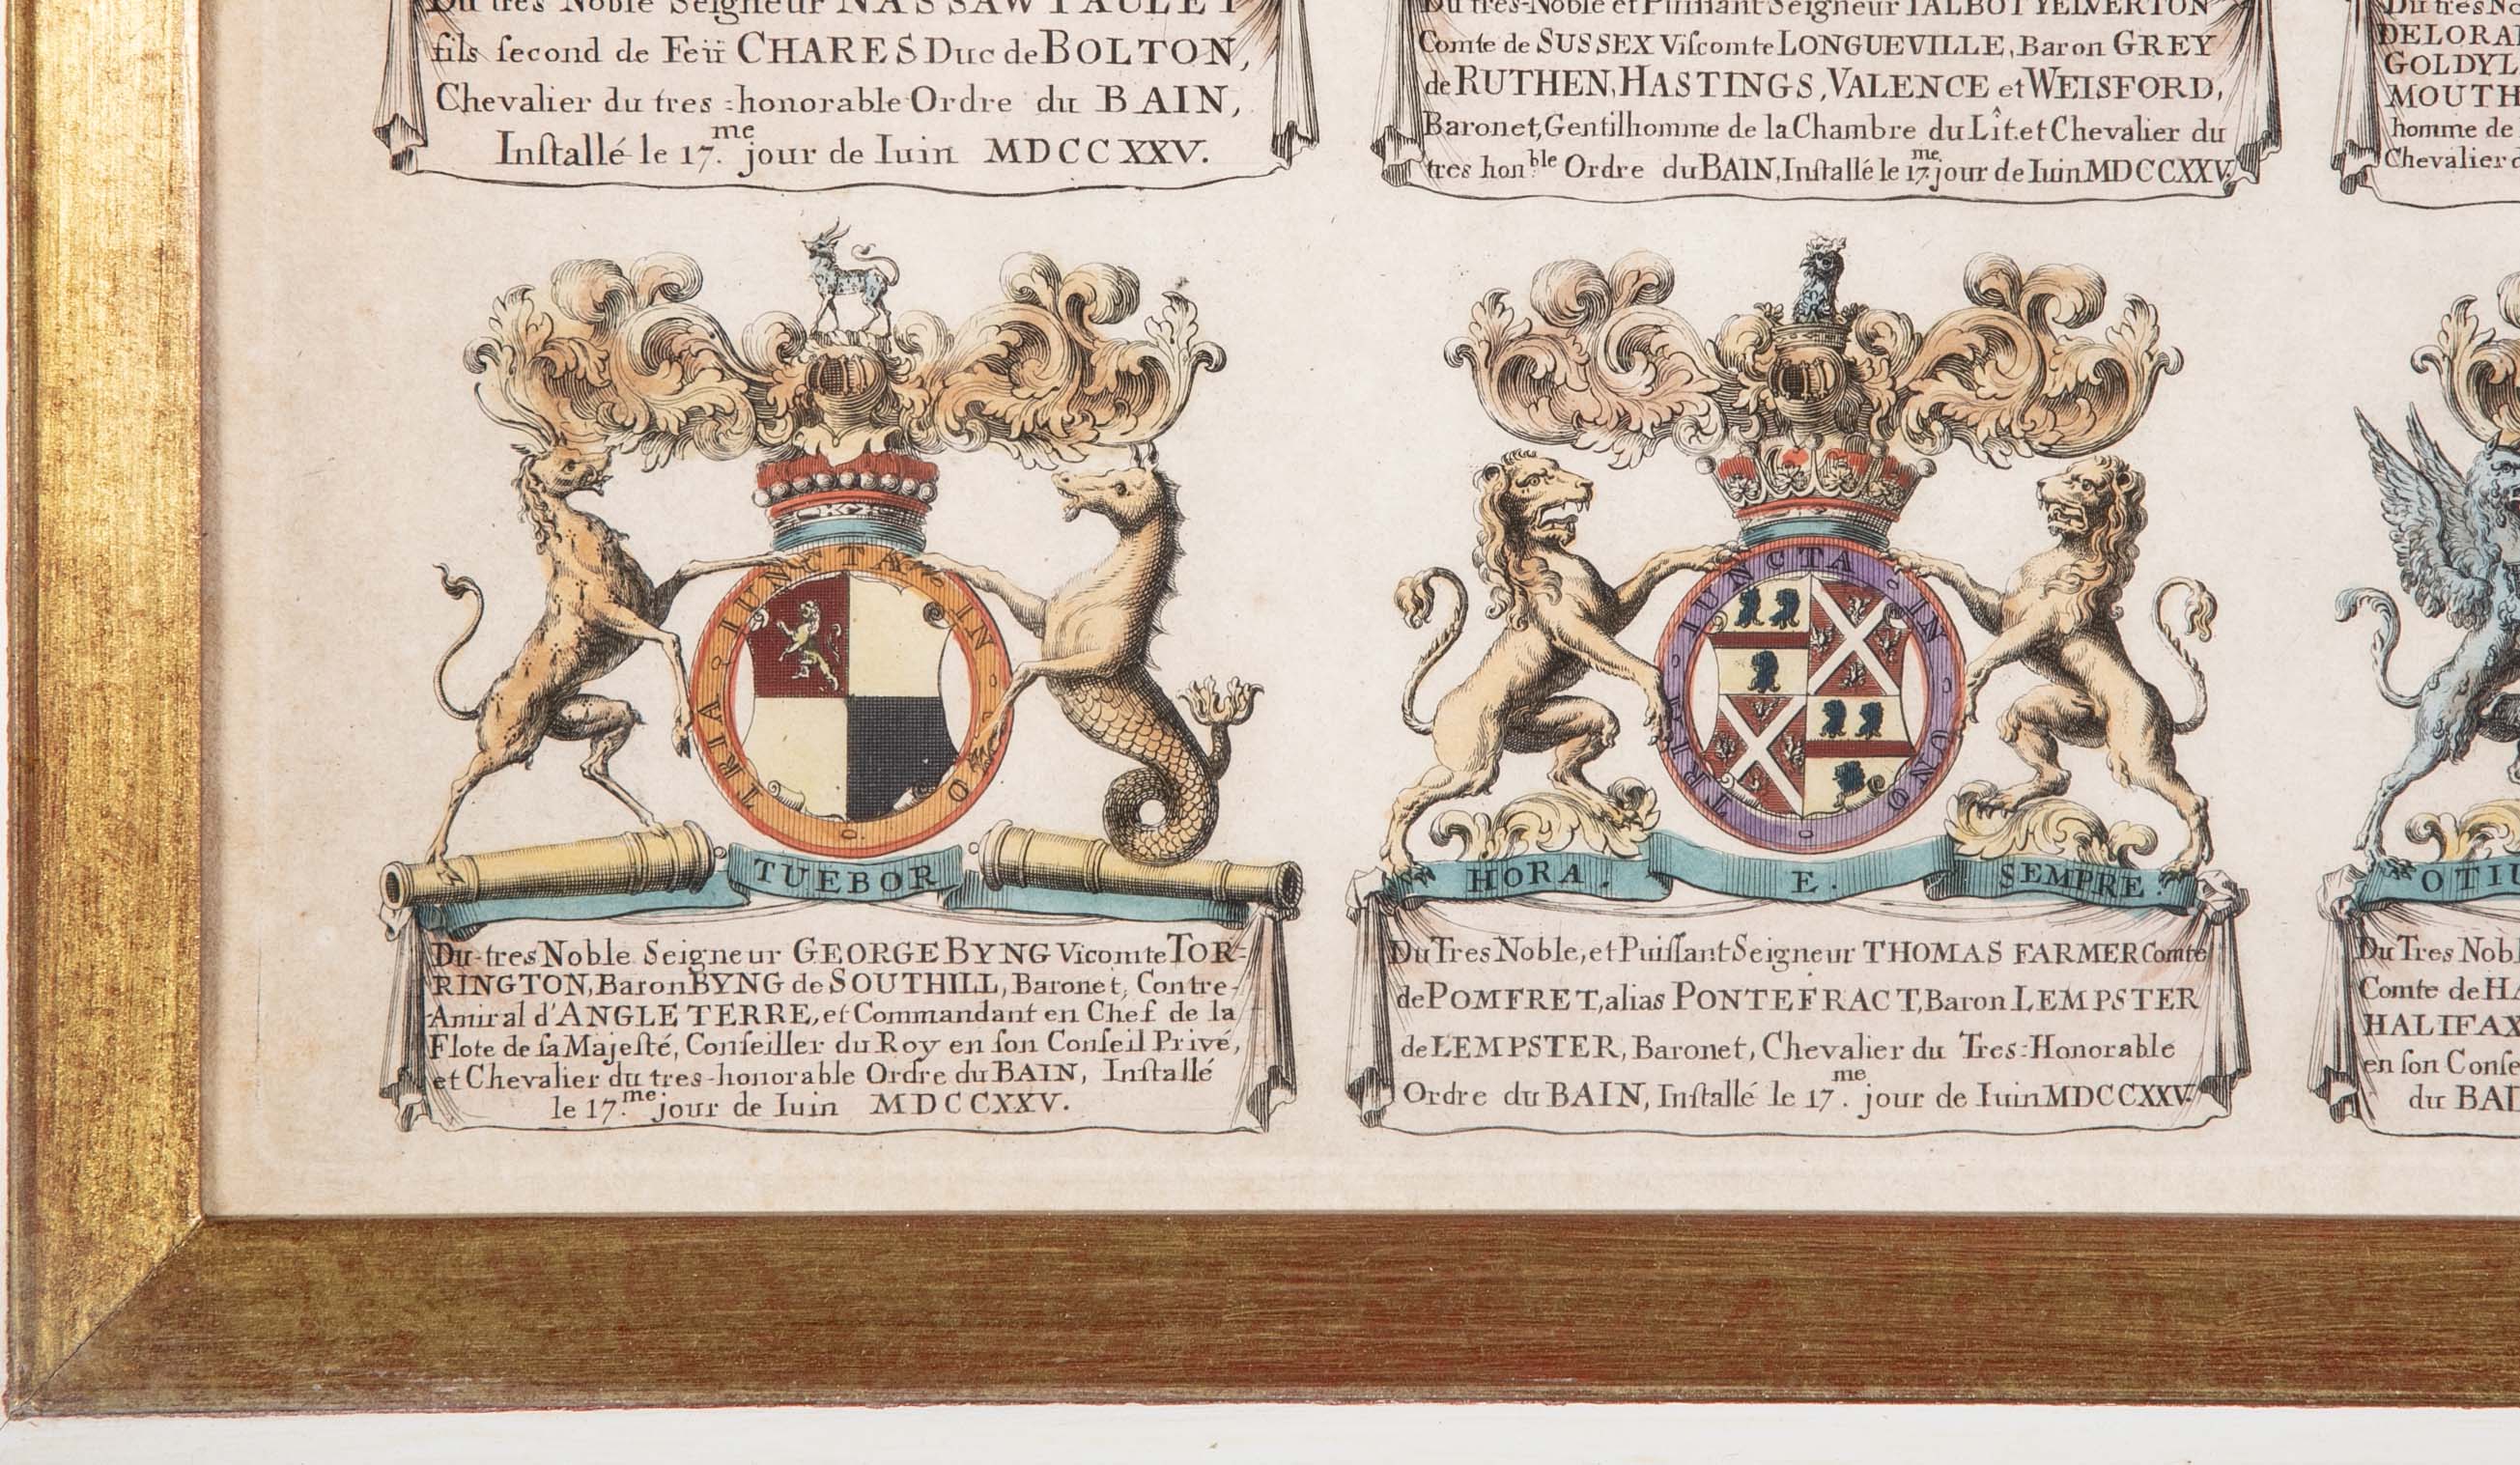 Du tres Noble Seigneur NASSAW PAULET
fils ſecond de Feü CHARES Duc de BOLTON,
Chevalier du tres-honorable Ordre du BAIN,
Inſtallé le 17.me jour de Iuin MDCCXXV.
Du tres-Noble et Puiſſant Seigneur TALBOT YELVERTON
Comte de SUSSEX Viſcomte LONGUEVILLE, Baron GREY
de RUTHEN, HASTINGS, VALENCE et WEISFORD,
Baronet, Gentilhomme de la Chambre du Lît et Chevalier du
tres hon.ble Ordre du BAIN, Inſtallé le 17.me jour de Iuin MDCCXXV.
Du tres No
DELORA
GOLDYL
MOUTH
homme de
Chevalier d
TRIA IUNCTA IN UNO
TUEBOR
Du tres Noble Seigneur GEORGE BYNG Vicomte TOR-
RINGTON, Baron BYNG de SOUTHILL, Baronet, Contre-
Amiral d'ANGLETERRE, et Commandant en Chef de la
Flote de ſa Majeſté, Conſeiller du Roy en ſon Conſeil Privé,
et Chevalier du tres-honorable Ordre du BAIN, Inſtallé
le 17.me jour de Iuin MDCCXXV.
TRIA IUNCTA IN UNO
HORA. E. SEMPRE.
Du Tres Noble, et Puiſſant Seigneur THOMAS FARMER Comte
de POMFRET, alias PONTEFRACT, Baron LEMPSTER
de LEMPSTER, Baronet, Chevalier du Tres-Honorable
Ordre du BAIN, Inſtallé le 17.me jour de Iuin MDCCXXV.
OTIU
Du Tres Nobl
Comte de HA
HALIFAX
en ſon Conſe
du BAI